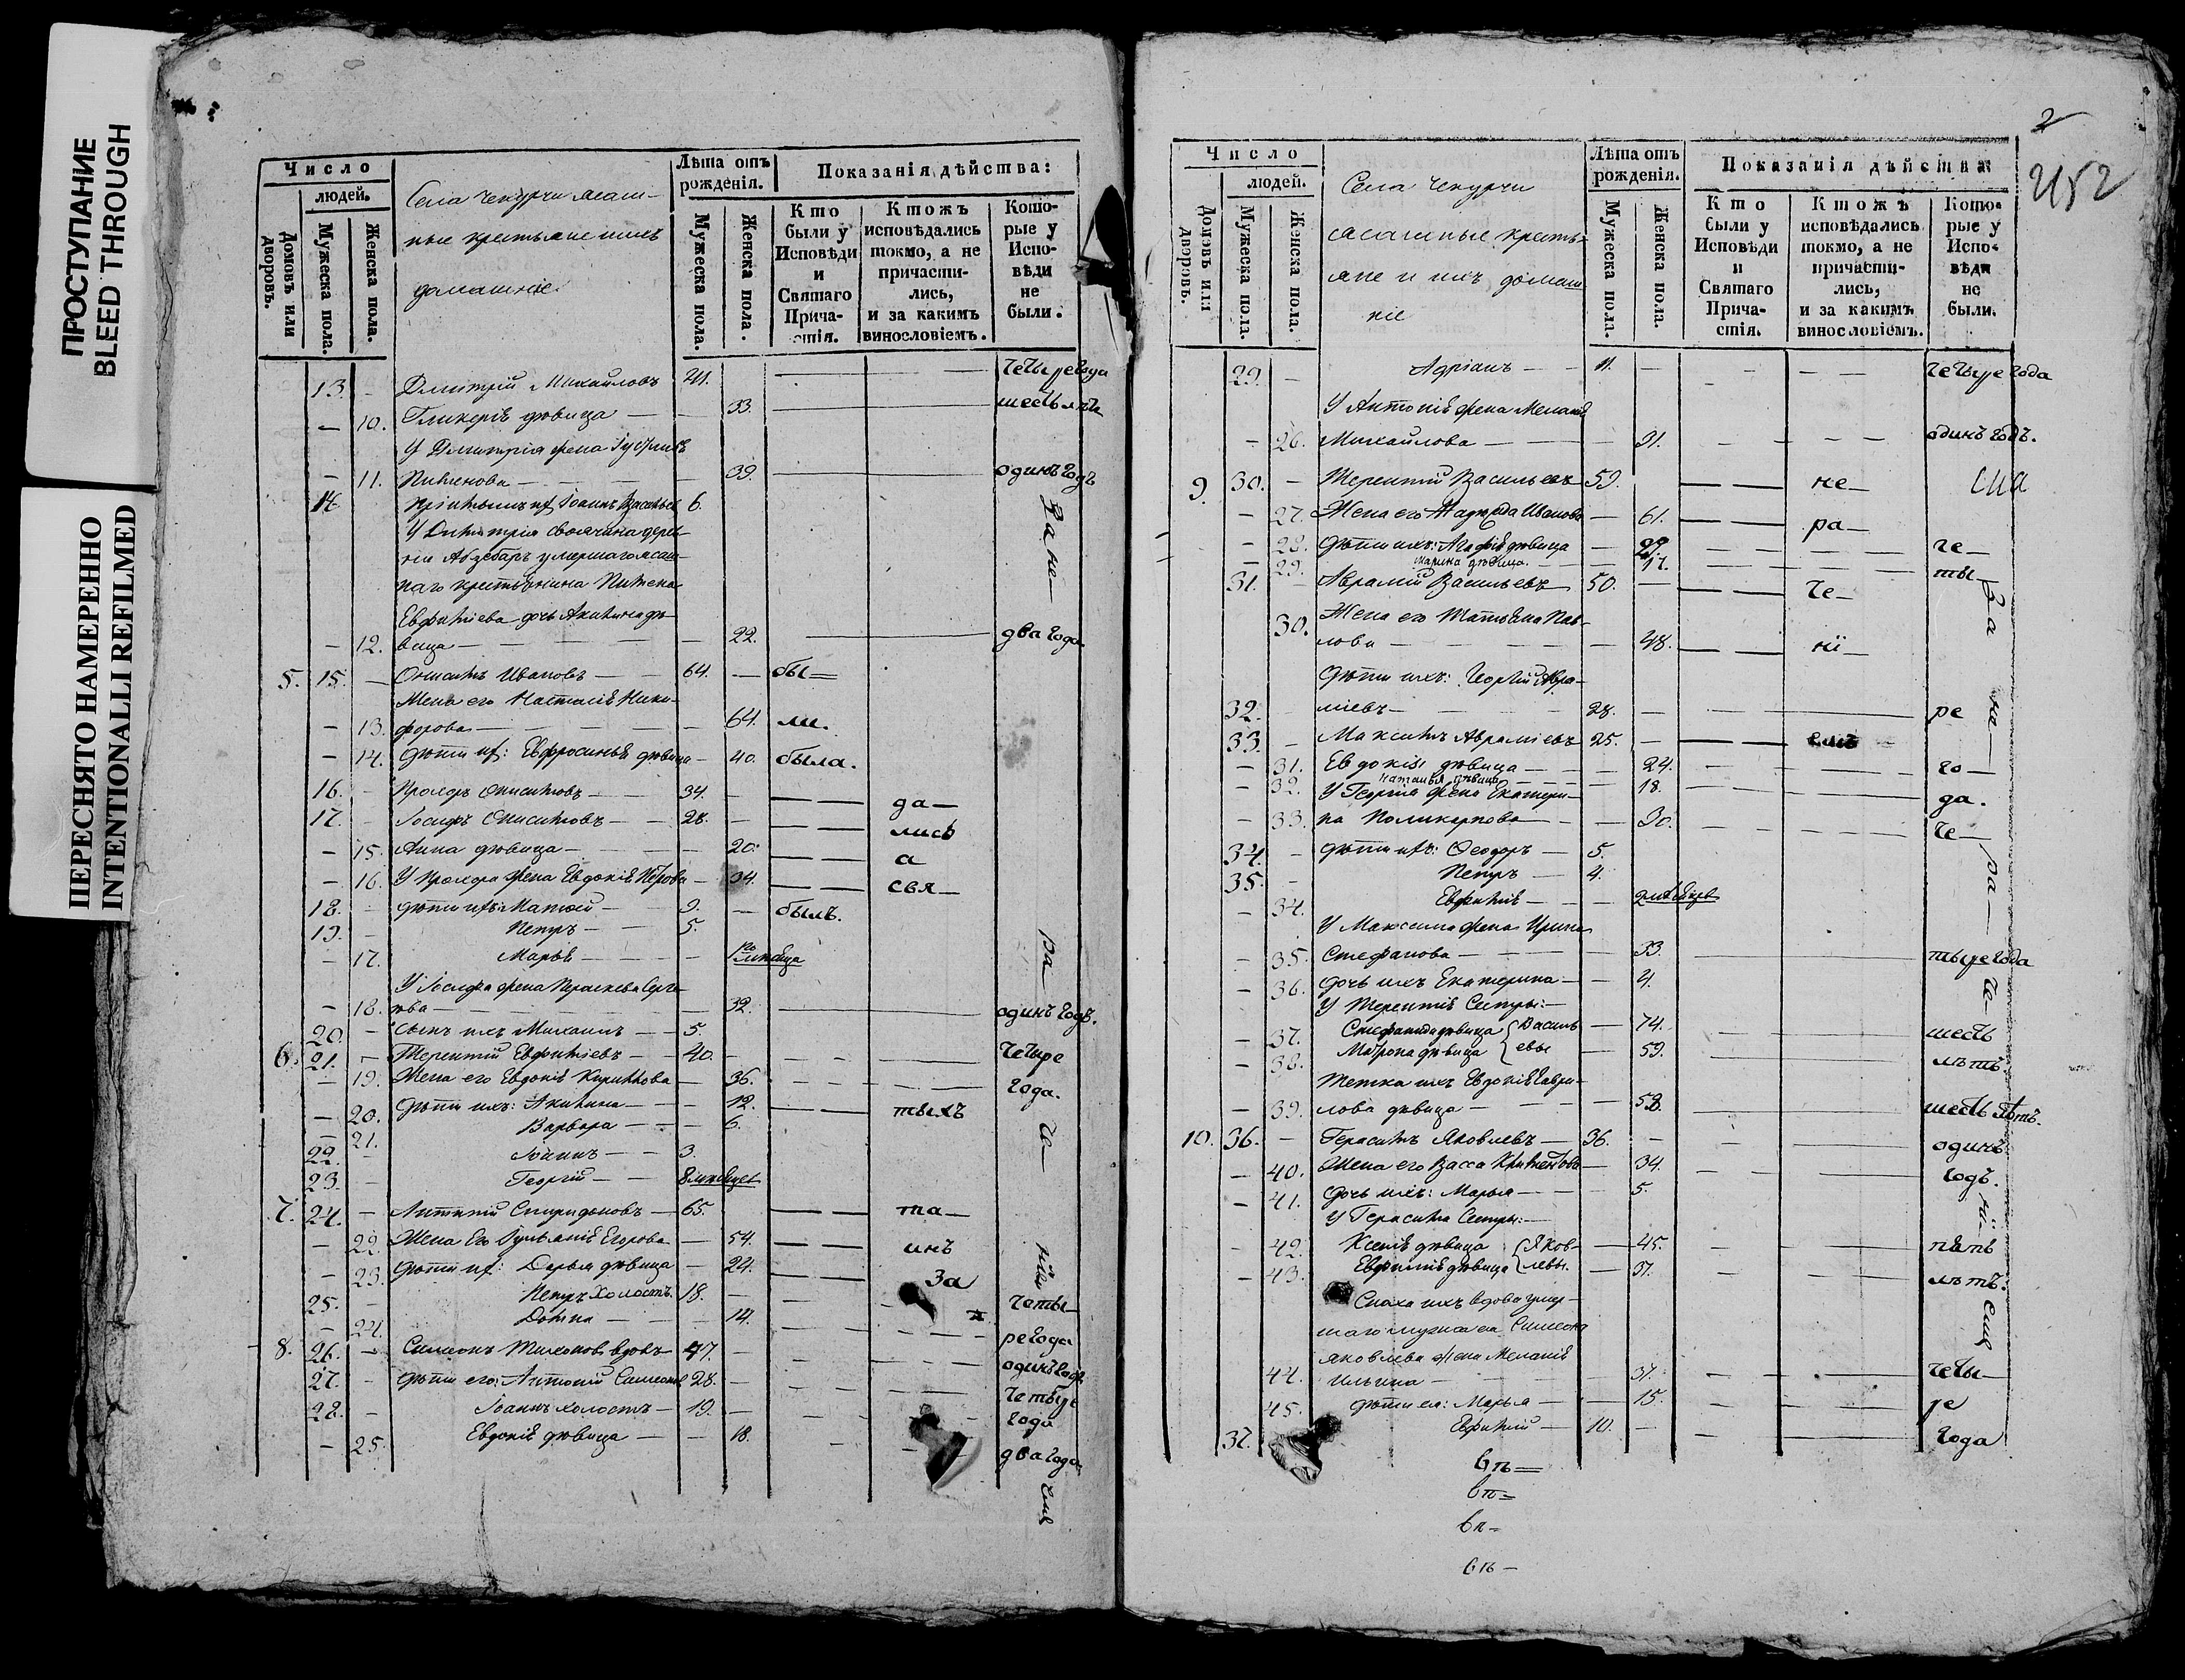 ПРОСТУПАНИЕ
BLEED THROUGH
ПЕРЕСНЯТО НАМЕРЕННО
INTENTIONALLI REFILMED
Число
людей.
Домовъ или дворовъ.
Мужеска пола.
Женска пола.
Села Чекурчи ясаш-
ные крестьяне ихъ
домашніе.
Лѣта отъ рожденія.
Мужеска пола.
Женска пола.
Показанія дѣйства:
Кто были у Исповѣди и Святаго Причастія.
Ктожъ исповѣдались токмо, а не причастились, и за какимъ винословіемъ.
Которые у Исповѣди не были.
13. Дмитрій Михайловъ 41. четыре года
10. Гликерія дѣвица 33. шесть лѣтъ
У Дмитрія жена
11. 39. одинъ годъ
14. Іоаннъ Васильевъ 6.
У Димитрія своячина дерев-
ни умершаго ясаш-
наго крестьянина Пимена
Евфиміева дочь Акилина дѣ-
12. вица 22. два года.
5. 15. Онисимъ Ивановъ 64. бы
Жена его Настасія Ники-
13. форова 64. ли.
14. Дѣти их: Евфросинья дѣвица 40. была.
16. Прохоръ Онисимовъ 34. да
17. Іосифъ Онисимовъ 28. лись
15. Анна дѣвица 20. а
16. У Прохора жена Евдокія 34. свя
18. дѣти ихъ: Матѳей 9. былъ.
19. Петръ 5.
17. Марья
У Іосифа жена Праскева Серге-
18. ева 32. одинъ годъ.
20. Сынъ ихъ Михаилъ 5.
6. 21. Терентій Евфиміевъ 40. четыре
19. Жена его Евдокія Кирилова 36. года.
20. Дѣти ихъ: Акилина 12. тыхъ
21. Варвара 6.
22. Іоаннъ 3.
23. Георгій 8 мѣсяцев
7. 24. Спиридоновъ 65. та
22. Жена его Егорова 54. инъ
23. Дѣти их: Дарья дѣвица 24. За
25. Петръ холостъ. 18. четы
24. Домна 14. ре года
8. 26. Симеонъ Тихоновъ вдовъ 47. одинъ годъ
27. Дѣти его: Антоній Симеонов 28. четыре
28. Іоаннъ холостъ 19. года
25. Евдокія дѣвица 18. два года
За не
ра
че
ніи
емъ
2
2152
Число
людей.
Домовъ или дворовъ.
Мужеска пола.
Женска пола.
Села Чекурчи
ясашные кресть-
яне и ихъ домаш
ніе
Лѣта отъ рожденія.
Мужеска пола.
Женска пола.
Показанія дѣйства:
Кто были у Исповѣди и Святаго Причастія.
Ктожъ исповѣдались токмо, а не причастились, и за какимъ винословіемъ.
Которые у Исповѣди не были.
29. Адріанъ 11. четыре года
У Антонія жена Меланія
26. Михайлова 31. одинъ годъ.
9. 30. Терентій Васильевъ 59. не
27. Жена его Надежда Иванова 61. ра
28. Дѣти ихъ: Агафія дѣвица 29. че
29. Марина дѣвица. 17. ты
31. Аврамій Васильевъ 50. че
Жена его Татьяна Пав-
30. лова 48. ні
Дѣти ихъ: Георгій Авра-
32. міевъ 28. ре
33. Максимъ Авраміевъ 25. емъ
31. Евдокія дѣвица 24. го
32. Наталья дѣвица 18. да.
У Георгія жена Екатери-
33. на Поликарпова 30. че
34. дѣти ихъ: Ѳеодоръ 5.
35. Петръ 4.
34. Евфимія 2 мѣсяцев
У Максима жена Ирина
35. Стефанова 33. тыре года
36. дочь ихъ Екатерина 4.
У Терентія Сестры:
37. Стефанида дѣвица Василь 74. шесть
38. Матрона дѣвица евы 59. лѣтъ.
Тетка ихъ Евдокія Гаври-
39. лова дѣвица 58. шесть лѣтъ.
10. 36. Герасимъ Яковлевъ 36. одинъ
40. Жена его Васса 34. годъ.
41. Дочь ихъ: Марья 5.
У Герасима Сестры:
42. Ксенія дѣвица Яков- 45. пять
43. Евфимія дѣвица левы. 37. лѣтъ.
Сноха ихъ вдова умер-
шаго мужа ея Симеона
Яковлева жена Меланія
44. Ильина 37. четы
45. дѣти ея: Марья 15. ре
37. Евфимій 10. года
За
не
ра
че
ні
емъ
вп
вп
вп
вп